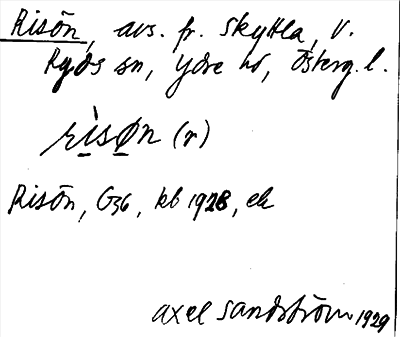 Risön, avs. fr. Skyttla, V.
Ryds sn, Ydre hd, Österg. l.
risøn (r)
Risön, G36, kb 1928, ek
Axel Sandström 1929